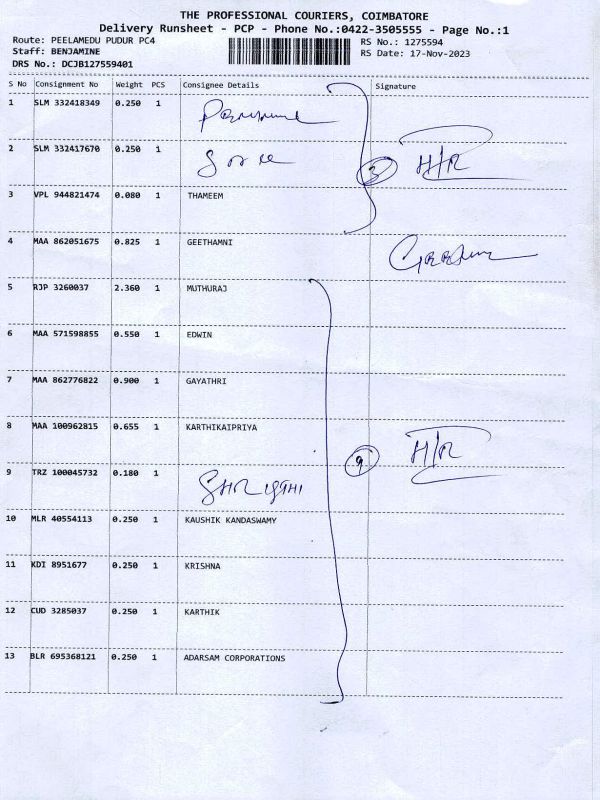 THE PROFESSIONAL COURIERS, COIMBATORE
Delivery Runsheet - PCP - Phone No.:0422-3505555 - Page No.:1
Route: PEELAMEDU PUDUR PC4 RS No.: 1275594
Staff: BENJAMINE RS Date: 17-Nov-2023
DRS No.: DCJB127559401
S No Consignment No Weight PCS Consignee Details Signature
1 SLM 332418349 0.250 1
2 SLM 332417670 0.250 1
3 H/R
3 VPL 944821474 0.080 1 THAMEEM
4 MAA 862051675 0.825 1 GEETHAMNI
5 RJP 3260037 2.360 1 MUTHURAJ
6 MAA 571598855 0.550 1 EDWIN
7 MAA 862776822 0.900 1 GAYATHRI
8 MAA 100962815 0.655 1 KARTHIKAIPRIYA
9 H/R
9 TRZ 100045732 0.180 1
10 MLR 40554113 0.250 1 KAUSHIK KANDASWAMY
11 KDI 8951677 0.250 1 KRISHNA
12 CUD 3285037 0.250 1 KARTHIK
13 BLR 695368121 0.250 1 ADARSAM CORPORATIONS